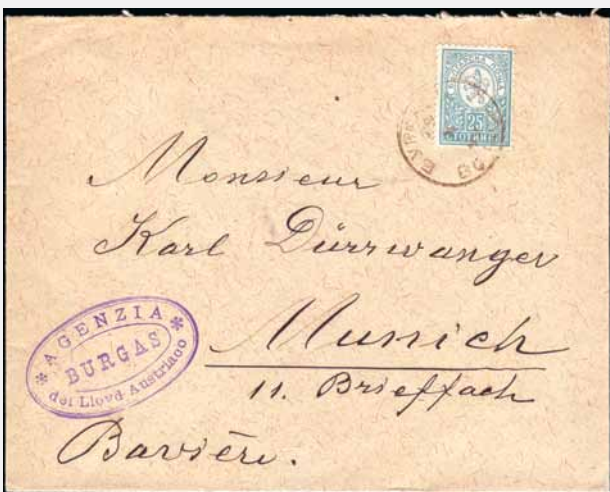 25
СТОТИНКИ
Monsieur
Karl Dürrwanger
Munich
11. Brieffach
Bavière.
* AGENZIA *
BURGAS
del Lloyd Austriaco